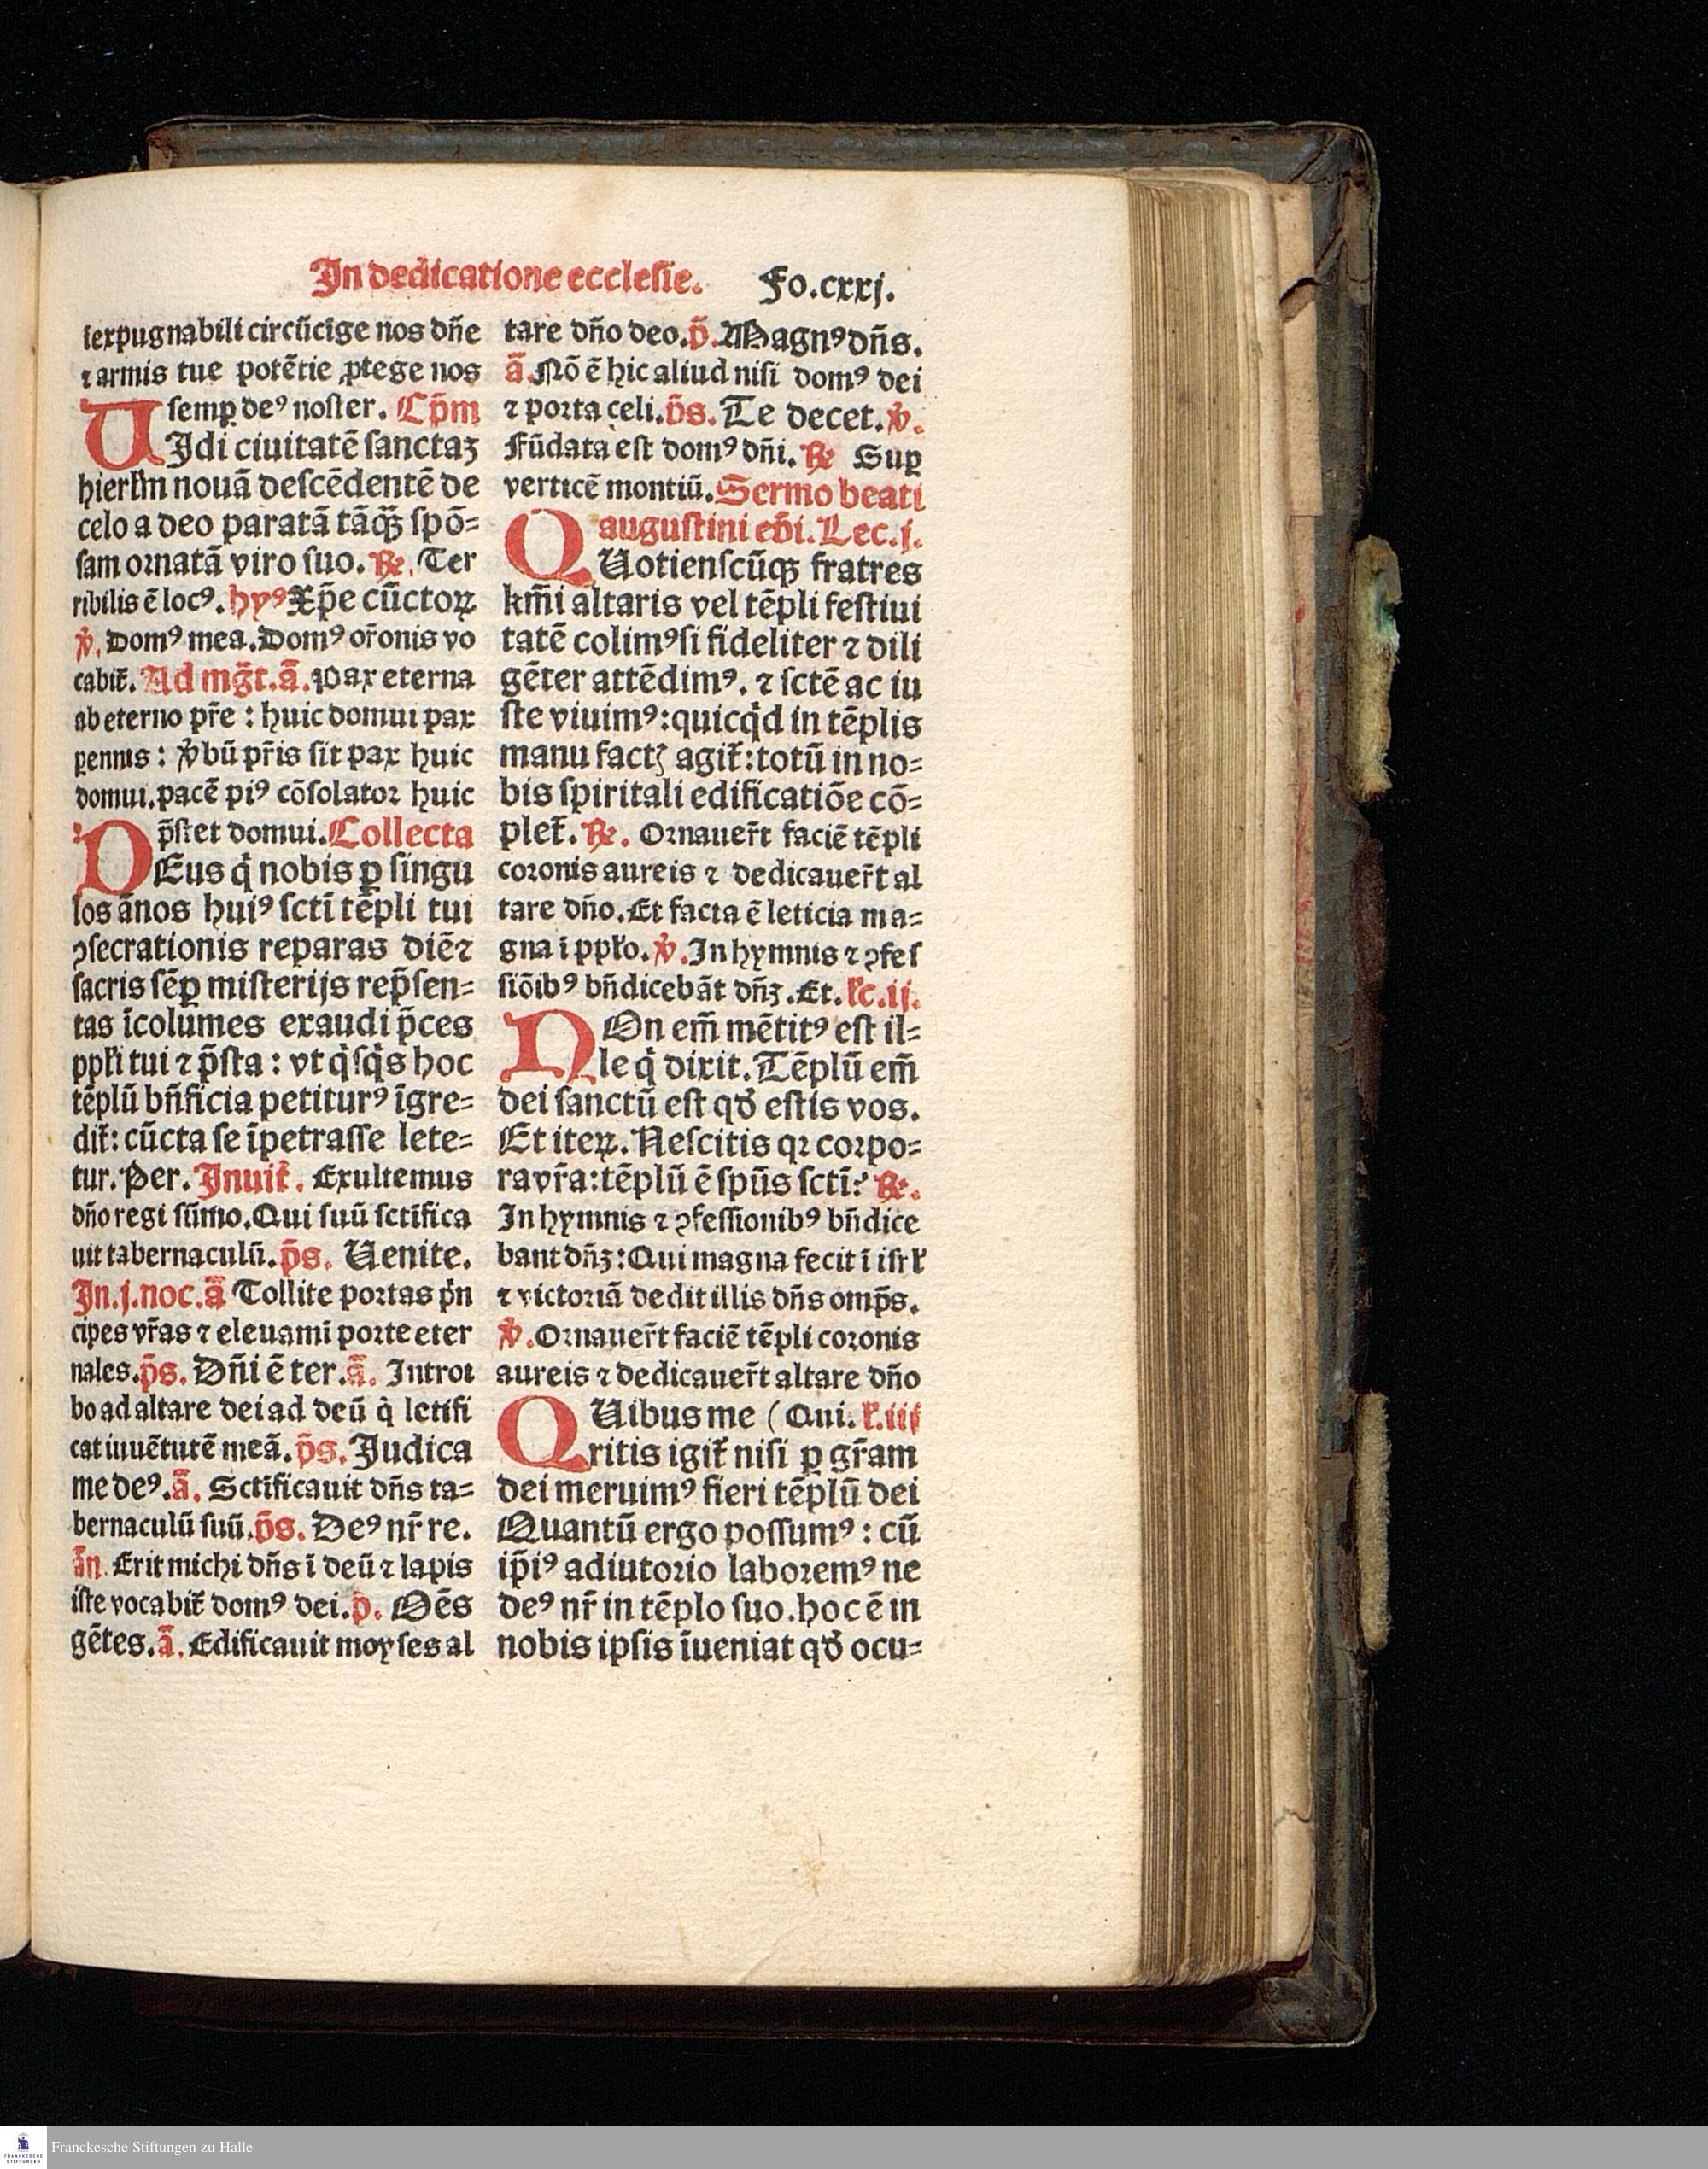 In dedicatione ecclesie. Fo.cxxj.
iexpugnabili circũcige nos dñe
⁊ armis tue potẽtie ꝓtege nos
semꝑ deꝰ noster. Cp̃m
UIdi ciuitatẽ sanctaꝫ
hierl̃m nouã descẽdentẽ de
celo a deo paratã tãꝙꝫ spõ⸗
sam ornatã viro suo. ℞. Ter
ribilis ẽ locꝰ. hyꝰ Xp̃e cũctoꝝ
℣. Domꝰ mea. Domꝰ or̃onis vo
cabit̃. Ad mg̃t. ã. Pax eterna
ab eterno pr̃e : huic domui pax
ꝑennis : v̾bũ pr̃is sit pax huic
domui. pacẽ piꝰ cõsolator huic
p̃stet domui. Collecta
DEus q̇ nobis ꝑ singu
los ãnos huiꝰ sctĩ tẽpli tui
ꝯsecrationis reparas diẽ ⁊
sacris sẽꝑ misterijs rep̃sen⸗
tas ĩcolumes exaudi p̃ces
ppl̃i tui ⁊ p̃sta : vt q̇sq̇s hoc
tẽplũ bñficia petiturꝰ ĩgre⸗
dit̃: cũcta se ĩpetrasse lete⸗
tur. Per. Inuit̃. Exultemus
dño regi sũmo. Qui suũ sctĩfica
uit tabernaculũ. p̃s. Uenite.
In.j.noc.ã Tollite portas p̍n
cipes vr̃as ⁊ eleuamĩ porte eter
nales. p̃s. Dñi ẽ ter. ã. Introi
bo ad altare dei ad deũ q̇ letifi
cat iuuẽtutẽ meã. p̃s. Judica
me deꝰ. ã. Sctĩficauit dñs ta⸗
bernaculũ suũ. p̃s. Deꝰ nr̃ re.
ãn. Erit michi dñs ĩ deũ ⁊ lapis
iste vocabit̃ domꝰ dei. p. Oẽs
gẽtes. ã. Edificauit moyses al
tare dño deo. p̃. Magnꝰ dñs.
ã. Nõ ẽ hic aliud nisi domꝰ dei
⁊ porta celi. p̃s. Te decet. ℣.
Fũdata est domꝰ dñi. ℞ Suꝑ
verticẽ montiũ. Sermo beati
augustini ep̃i. Lec. j.
QUotienscũqꝫ fratres
km̃i altaris vel tẽpli festiui
tatẽ colimꝰ si fideliter ⁊ dili
gẽter attẽdimꝰ. ⁊ sctẽ ac iu
ste viuimꝰ: quicq̇d in tẽplis
manu factꝭ agit̃: totũ in no⸗
bis spiritali edificatiõe cõ⸗
plet̃. ℞. Ornauer̃t faciẽ tẽpli
coronis aureis ⁊ dedicauer̃t al
tare dño. Et facta ẽ leticia ma⸗
gna ĩ ppl̃o. ℣. In hymnis ⁊ ꝯfes
siõibꝰ bñdicebãt dñꝫ. Et. lc̃. ij.
NOn em̃ mẽtitꝰ est il⸗
le q̇ dixit. Tẽplũ em̃
dei sanctũ est qd̾ estis vos.
Et iteꝝ. Nescitis qꝛ corpo⸗
ra vr̃a: tẽplũ ẽ spũs sctĩ? ℞.
In hymnis ⁊ ꝯfessionibꝰ bñdice
bant dñꝫ: Qui magna fecit ĩ isrl̃
⁊ victoriã dedit illis dñs omp̃s.
℣. Ornauer̃t faciẽ tẽpli coronis
aureis ⁊ dedicauer̃t altare dño
QUibus me (Qui. l̃. iij
ritis igit̃ nisi ꝑ gr̃am
dei meruimꝰ fieri tẽplũ dei
Quantũ ergo possumꝰ : cũ
ip̃iꝰ adiutorio laboremꝰ ne
deꝰ nr̃ in tẽplo suo. hoc ẽ in
nobis ipsis ĩueniat qd̾ ocu⸗
FRANCKESCHE
STIFTUNGEN
Franckesche Stiftungen zu Halle